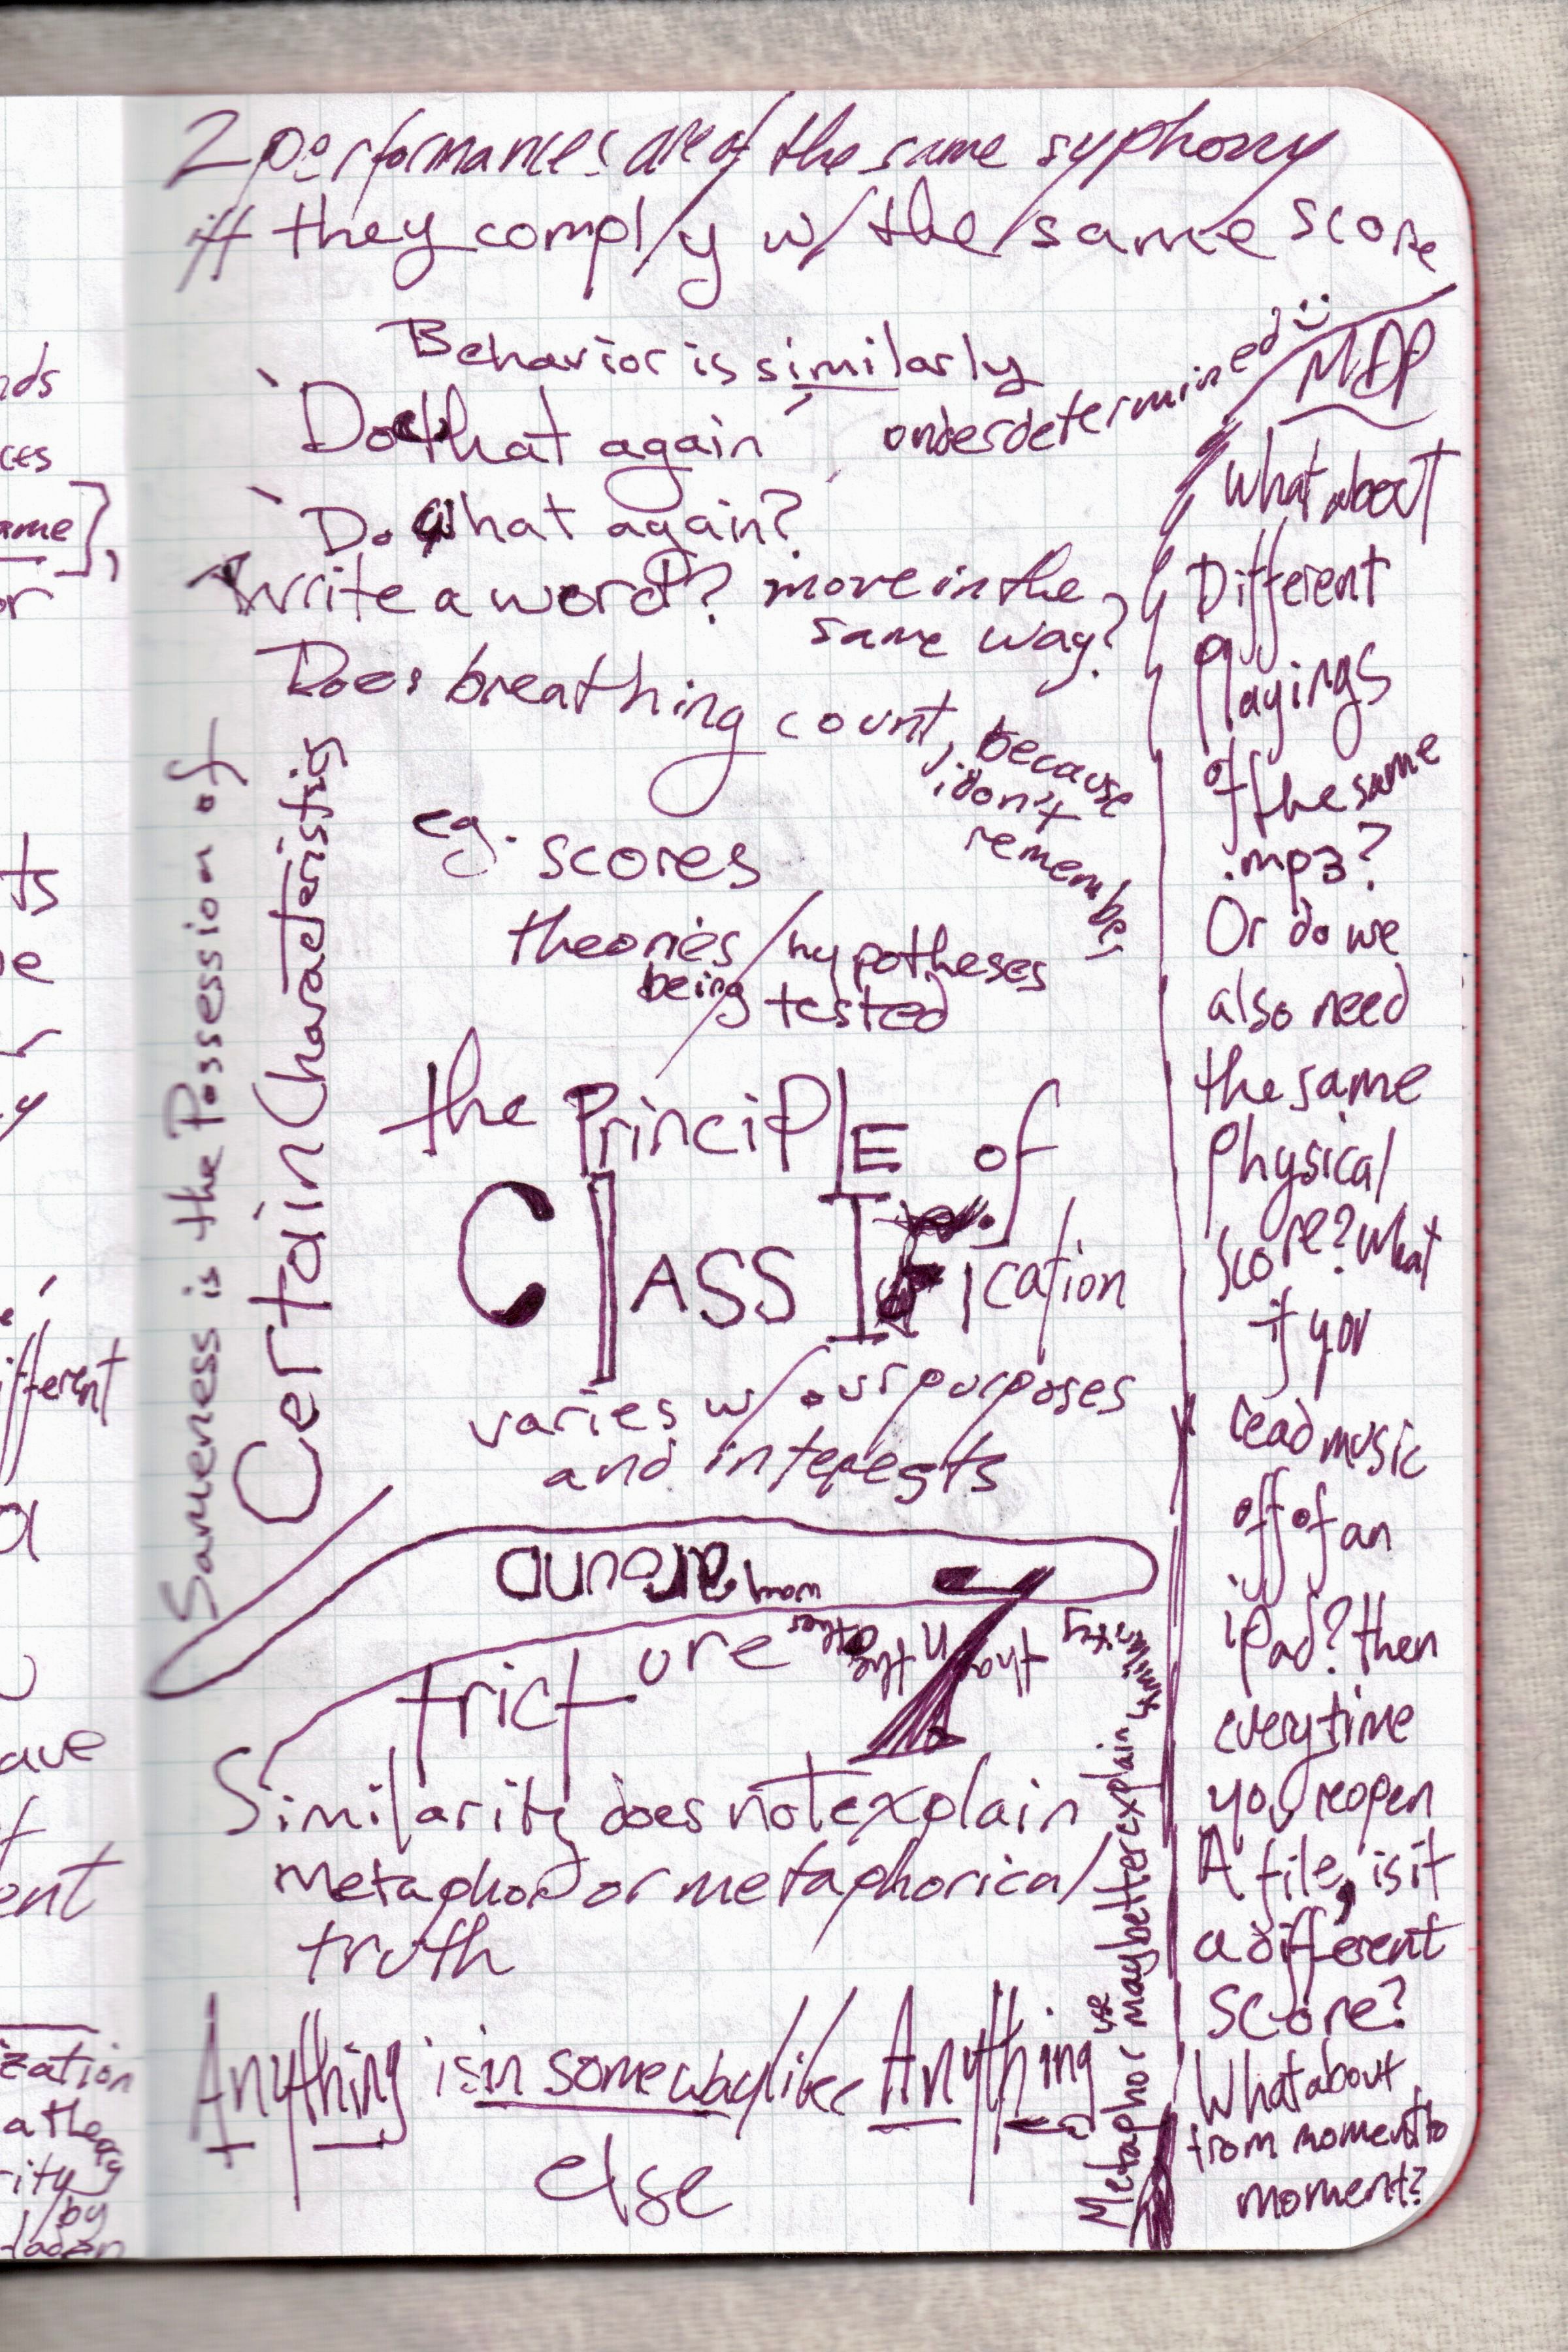 2 performances are of the same syphony
iff they comply w/ the same score
Behavior is similarly
underdetermined :)
'Do that again'
'Do what again?
Write a word? move in the
same way?
Does breathing count, because
i don't
remember
eg. scores
theories/hypotheses
being tested
the PrinciPlE of
ClASSIfication
varies w/ our purposes
and interests
Sameness is the Possession of
Certain Characteristics
around
way
other
the
trict ure
Similarity does not explain
metaphor or metaphorical
truth
Anything is in some way like Anything
else
Metaphor use may better explain
similarity
MDP
What about
Different
Playings
of the same
.mp3?
Or do we
also need
the same
Physical
score? What
if you
read music
off of an
iPad? then
everytime
you reopen
A file, is it
a different
score?
What about
from moment to
moment?
nds
ces
ame],
or
ts
ifferent
ave
ent
ization
rity
by